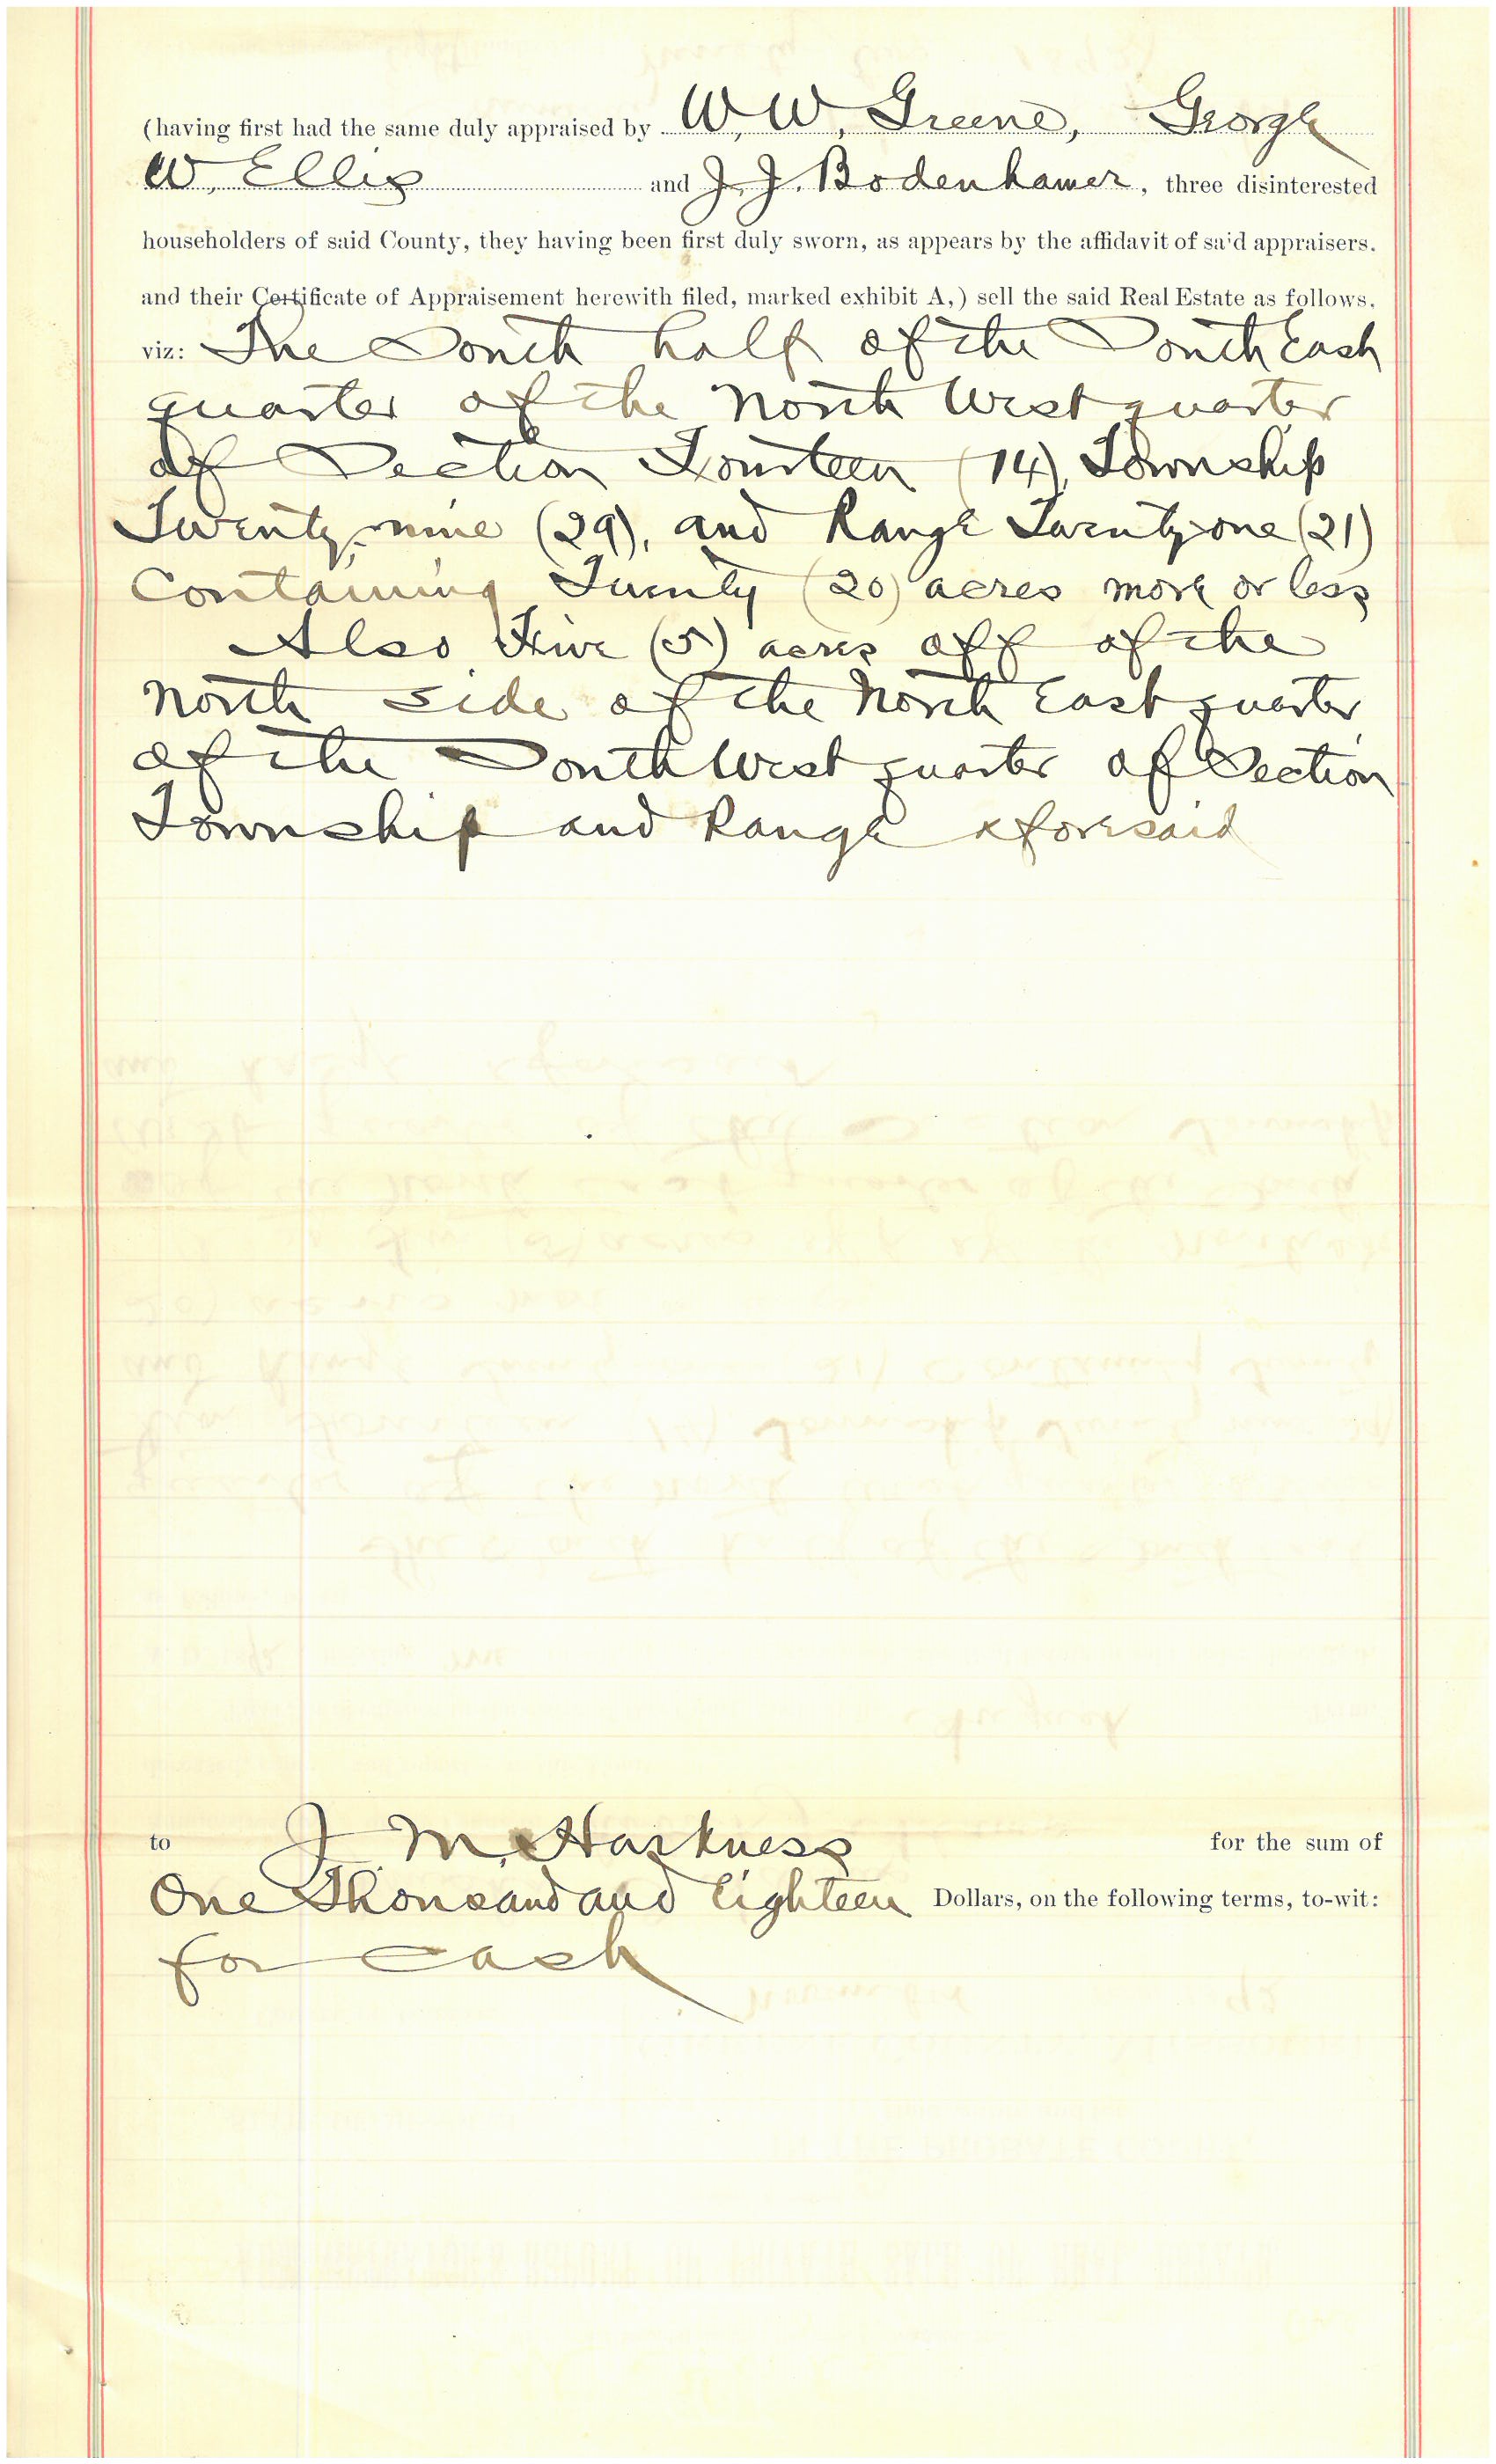 (having first had the same duly appraised by W. W. Greene, George
W. Ellis and J. J. Bodenhamer, three disinterested
householders of said County, they having been first duly sworn, as appears by the affidavit of said appraisers.
and their Certificate of Appraisement herewith filed, marked exhibit A,) sell the said Real Estate as follows.
viz: The South half of the South East
quarter of the North West quarter
of Section Fourteen (14), Township
Twenty-nine (29), and Range Twenty one (21)
Containing Twenty (20) acres more or less
Also Five (5) acres off of the
North side of the North East quarter
of the South West quarter of Section
Township and Range aforesaid
to J. M. Harkness for the sum of
One Thousand and Eighteen Dollars, on the following terms, to-wit:
for Cash